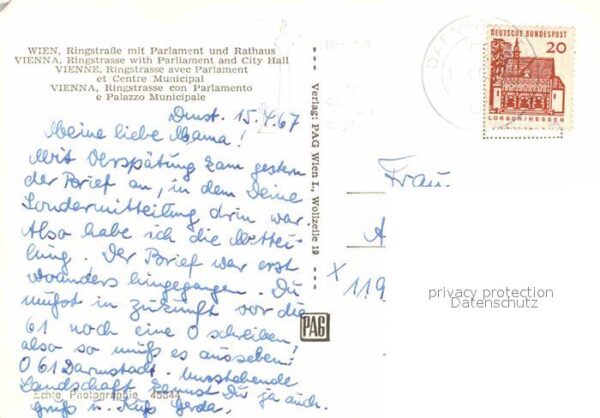 WIEN, Ringstraße mit Parlament und Rathaus
VIENNA, Ringstrasse with Parliament and City Hall
VIENNE, Ringstrasse avec Parlament
et Centre Municipal
VIENNA, Ringstrasse con Parlamento
e Palazzo Municipale
Dmst. 15.4.67
Meine liebe Mama!
Mit Verspätung kam gestern
der Brief an, in dem Deine
Sondermitteilung drin war.
Also habe ich die Mittei-
lung. Der Brief war erst
woanders hingegangen. Du
mußt in Zukunft vor die
61 noch eine 0 schreiben!
also so muß es aussehen!
061 Darmstadt. Umstehende
Landschaft kennst Du ja auch.
Gruß u. Kuß Gerda.
Echte Photographie 45844
Verlag: PAG Wien I., Wollzeile 19
PAG
DEUTSCHE BUNDESPOST
20
LORSCH/HESSEN
Frau
A
x 119
privacy protection
Datenschutz